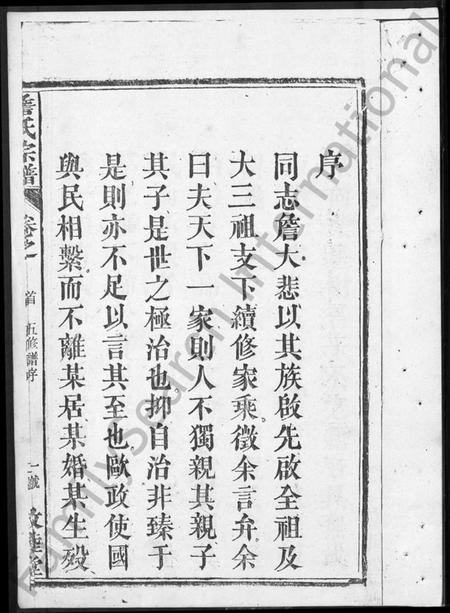 序
同志詹大悲以其族啟先啟全祖及
大三祖支下續修家乘徵余言弁余
曰夫天下一家則人不獨親其親子
其子是世之極治也抑自治非臻于
是則亦不足以言其至也歐政使國
與民相繫而不離某居某婚某生歿
詹氏宗譜
卷之
首 五修譜序
堂
FamilySearch International